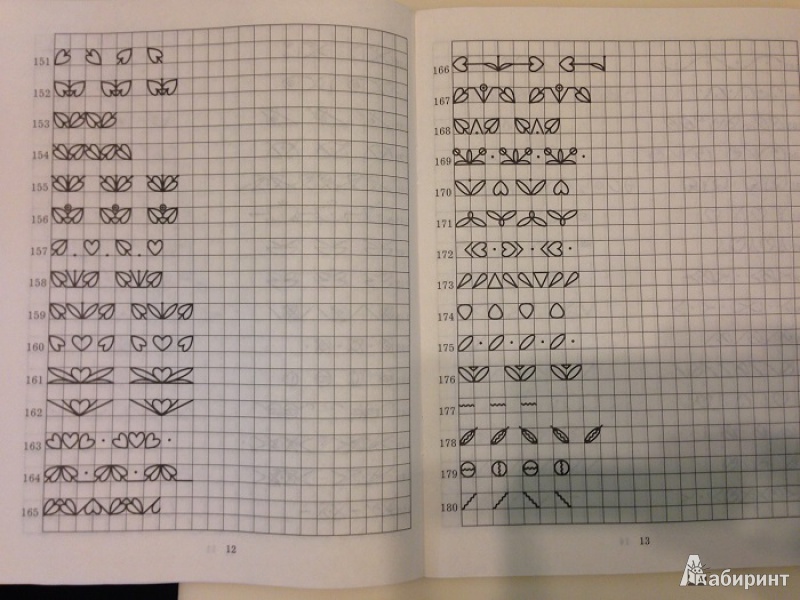 151
152
153
154
155
156
157
158
159
160
161
162
163
164
165
12
166
167
168
169
170
171
172
173
174
175
176
177
178
179
180
13
Лабиринт